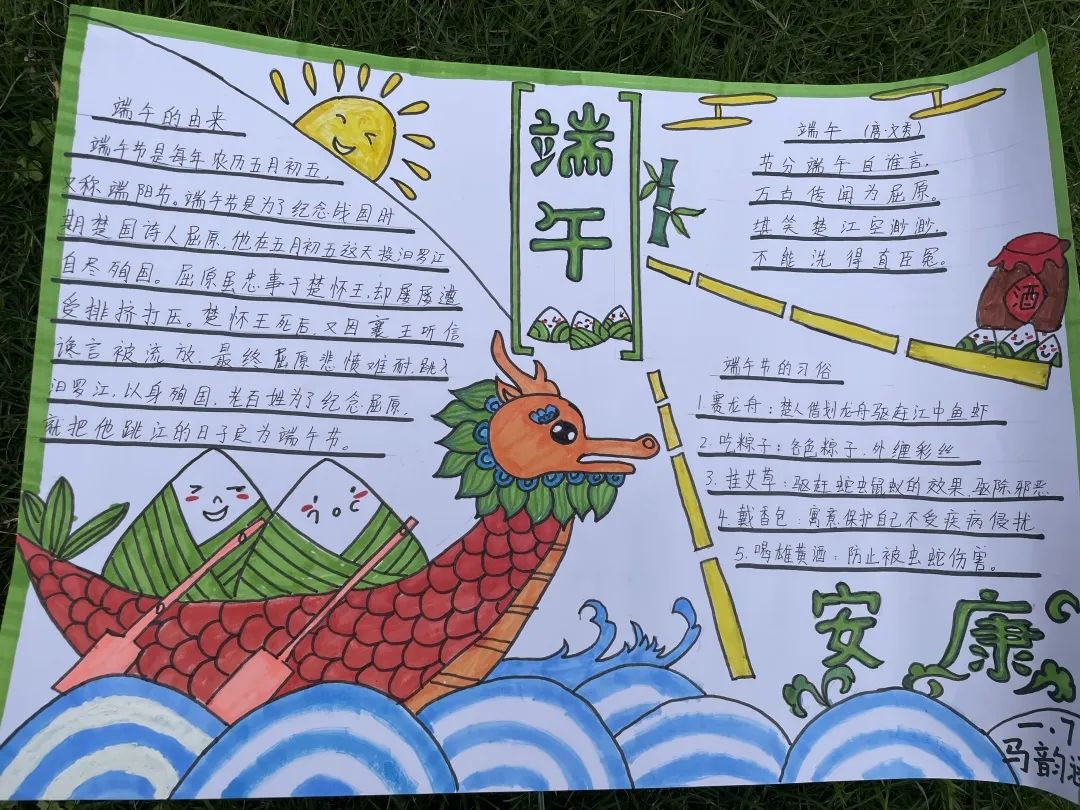 端午的由来
端午节是每年农历五月初五,
又称端阳节。端午节是为了纪念战国时
期楚国诗人屈原,他在五月初五这天投汨罗江
自尽殉国。屈原虽忠事于楚怀王,却屡屡遭
受排挤打压。楚怀王死后,又因襄王听信
谗言被流放,最终屈原悲愤难耐,跳入
汨罗江,以身殉国,老百姓为了纪念屈原,
就把他跳江的日子定为端午节。
端午
端午 (唐·文秀)
节分端午自谁言,
万古传闻为屈原。
堪笑楚江空渺渺,
不能洗得直臣冤。
酒
端午节的习俗
1.赛龙舟:楚人借划龙舟驱赶江中鱼虾
2.吃粽子:各色粽子,外缠彩丝
3.挂艾草:驱赶蛇虫鼠蚁的效果,驱除邪恶
4.戴香包:寓意保护自己不受疾病侵扰
5.喝雄黄酒:防止被虫蛇伤害。
安康
一.7
马韵